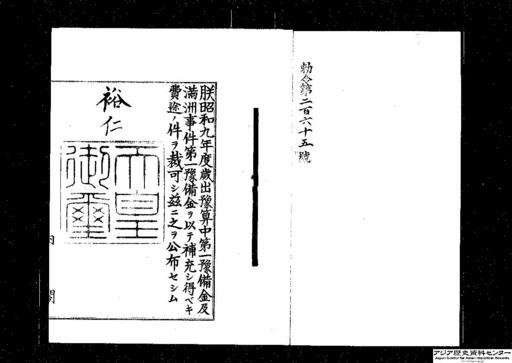 勅令第二百六十五號
朕昭和九年度歳出豫算中第一豫備金及
滿洲事件第一豫備金ヲ以テ補充シ得ベキ
費途ノ件ヲ裁可シ茲ニ之ヲ公布セシム
裕仁
天皇御璽
内閣
アジア歴史資料センター
Japan Center for Asian Historical Records